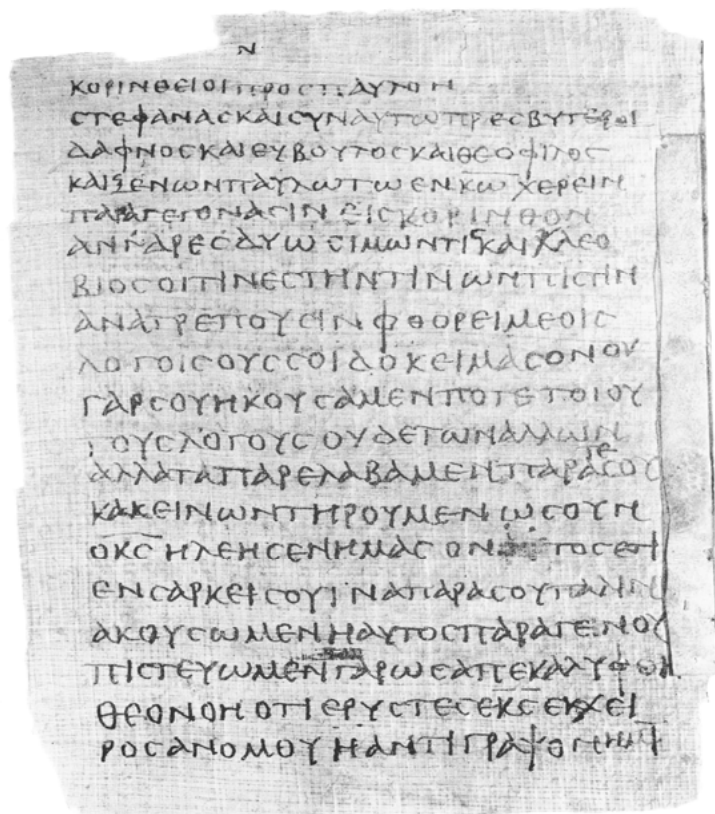 Ν
ΚΟΡΙΝΘΕΙΟΙΠΡΟϹΠΑΥΛΟΝ
ϹΤΕΦΑΝΑϹΚΑΙϹΥΝΑΥΤΩΠΡΕϹΒΥΤΕΡΟΙ
ΔΑΦΝΟϹΚΑΙΕΥΒΟΥΤΟϹΚΑΙΘΕΟΦΙΛΟϹ
ΚΑΙΞΕΝΩΝΠΑΥΛΩΤΩΕΝΚ̅Ω̅ΧΕΡΕΙΝ
ΠΑΡΑΓΕΓΟΝΑϹΙΝΕΙϹΚΟΡΙΝΘΟΝ
ΑΝΔΑΡΕϹΔΥΩϹΙΜΩΝΤΙϹΚΑΙΚΛΕΟ
ΒΙΟϹΟΙΤΙΝΕϹΤΗΝΤΙΝΩΝΠΙϹΤΙΝ
ΑΝΑΤΡΕΠΟΥϹΙΝΦΘΟΡΕΙΜΕΟΙϹ
ΛΟΓΟΙϹΟΥϹϹΟΙΔΟΚΕΙΜΑϹΟΝΟΥ
ΓΑΡϹΟΥΗΚΟΥϹΑΜΕΝΠΟΤΕΤΟΙΟΥ
ΤΟΥϹΛΟΓΟΥϹΟΥΔΕΤΩΝΑΛΛΩΝ
ΤΕ
ΑΛΛΑΤΑΠΑΡΕΛΑΒΑΜΕΝΠΑΡΑϹΟΥ
ΚΑΚΕΙΝΩΝΤΗΡΟΥΜΕΝΩϹΟΥΝ
ΟΚ̅Ϲ̅ΗΛΕΗϹΕΝΗΜΑϹΟΝΤΟϹΕΤΙ
ΕΝϹΑΡΚΕΙϹΟΥΙΝΑΠΑΡΑϹΟΥΠΑΛΙΝ
ΑΚΟΥϹΩΜΕΝΗΑΥΤΟϹΠΑΡΑΓΕΝΟΥ
ΠΙϹΤΕΥΩΜΕΝΓΑΡΩϹΑΠΕΚΑΛΥΦΘΗ
ΘΕΟΝΟΗΟΤΙΕΡΥϹΤΕϹΕΚ̅Ϲ̅ΕΚΧΕΙ
ΡΟϹΑΝΟΜΟΥΗΑΝΤΙΓΡΑΨΟΝΗΜΙ